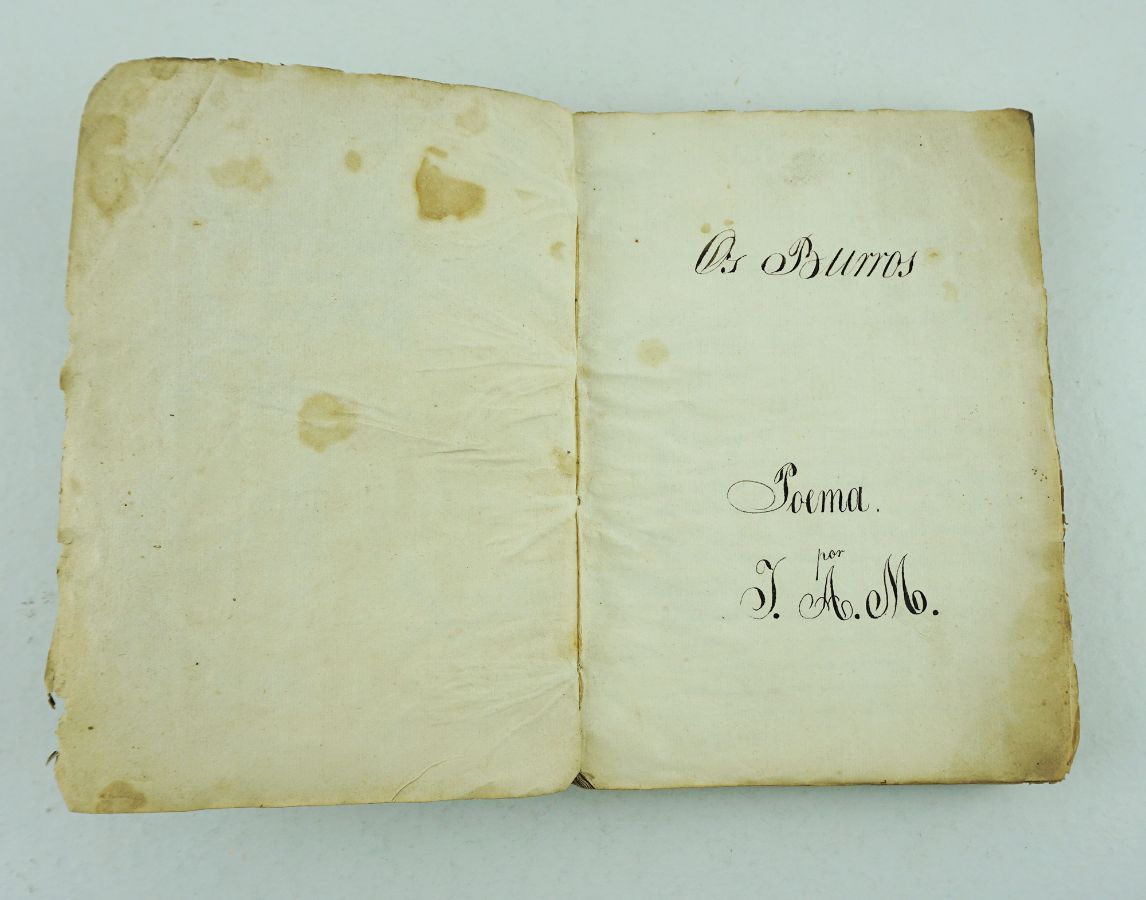 Os Burros
Poema.
por
J. A. M.